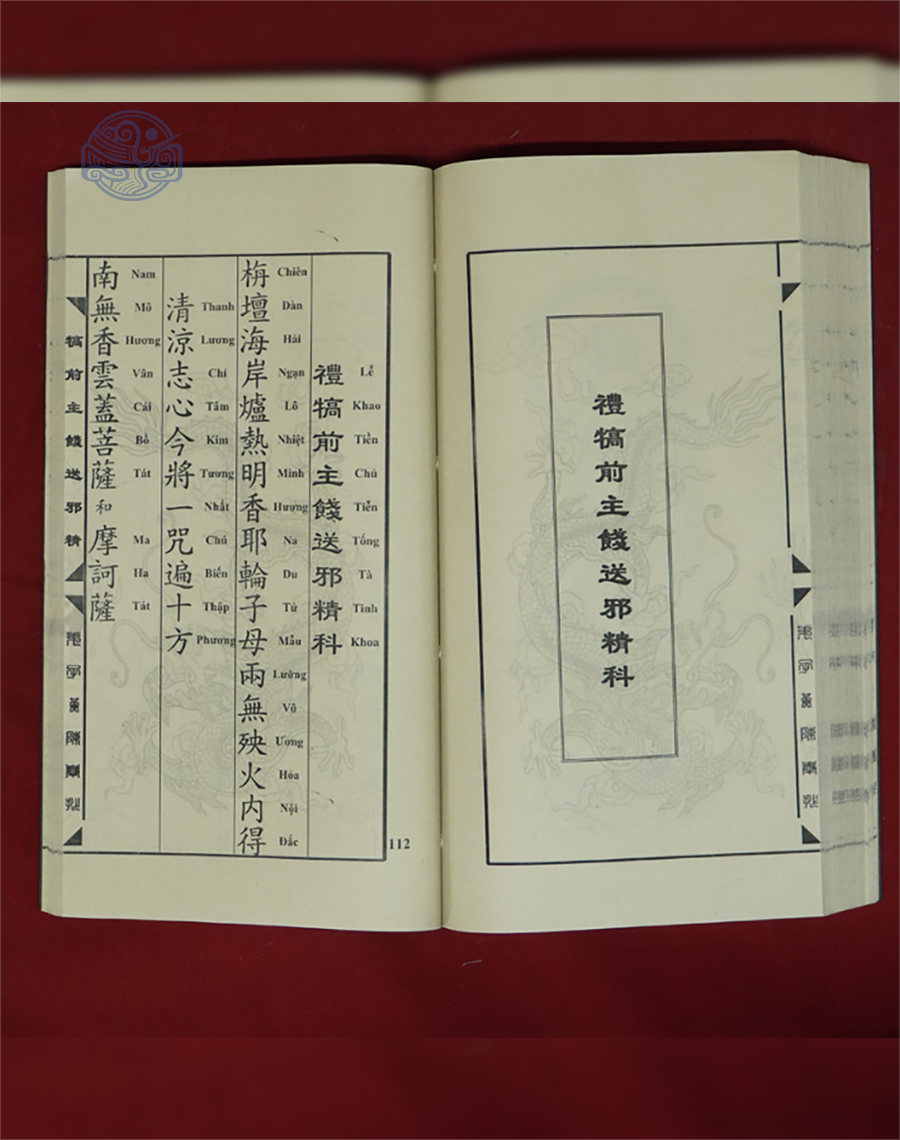 禮犒前主餞送邪精科
禮犒前主餞送邪精科
Lễ Khao Tiền Chủ Tiễn Tống Tà Tinh Khoa
栴壇海岸爐熱明香耶輪子母兩無殃火内得
Chiên Đàn Hải Ngạn Lô Nhiệt Minh Hương Na Du Tử Mẫu Lưỡng Vô Ương Hỏa Nội Đắc
清涼志心今將一咒遍十方
Thanh Lương Chí Tâm Kim Tương Nhất Chú Biến Thập Phương
南無香雲蓋菩薩和摩訶薩
Nam Mô Hương Vân Cái Bồ Tát Ma Ha Tát
犒前主餞送邪精
112